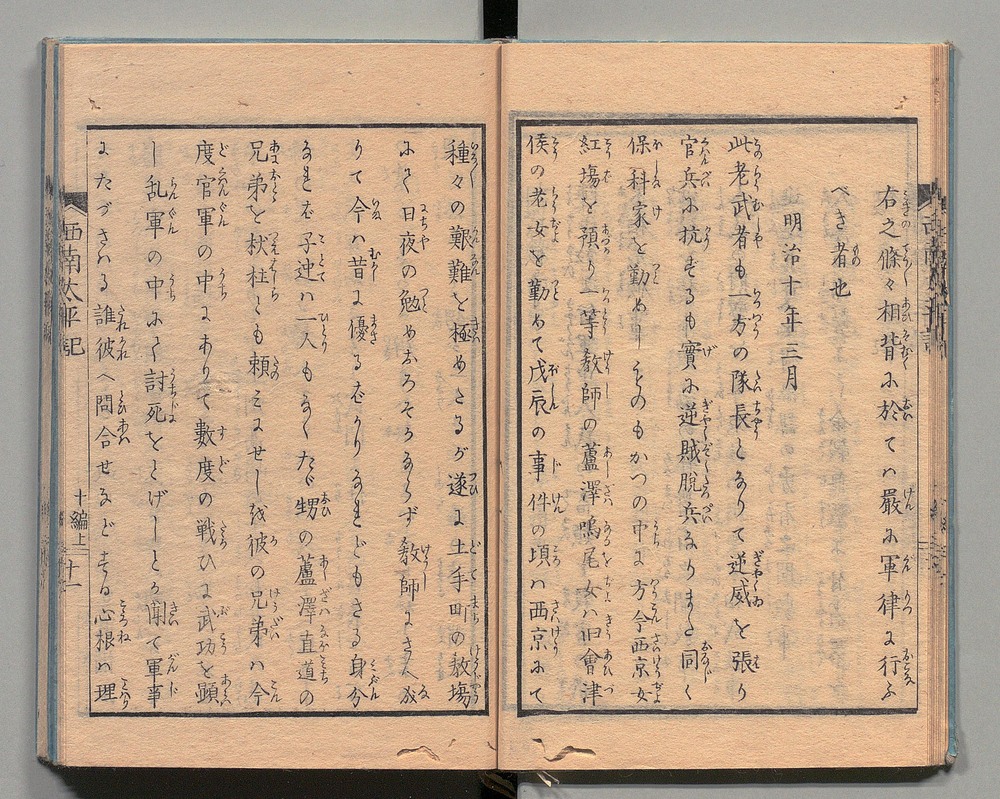 右之條々相背ふ於てハ嚴ふ軍律ゟ行ふ
べき者也
明治十年三月
此老武者も一方の隊長となりて逆威を張り
官兵ふ抗するも實ふ逆賊脱兵なりまた同く
保科家を勤めり そのもかつの中ゟ方今西京女
紅塲を預り一等教師の蘆澤鳴尾女ハ旧會津
侯の老女を勤めて戊辰の事件の頃ハ西京ふて
種々の艱難を極めたるが遂ゟ土手町の教塲
ふて日夜の勉めおろそかならず教師ゟさへ成
りて今ハ昔ゟ優るばかりなれどもさる身分
なれば子迚ハ一人もなくたゞ甥の蘆澤直道の
兄弟を杖柱とも頼ミはせしを彼の兄弟ハ今
度官軍の中ゟありて數度の戦ひゟ武功を顕
し乱軍の中ふて討死をとげしとか聞て軍事
ゟたづさハる誰彼へ問合せなどする心根ハ理
西南太平記
十編上
十一